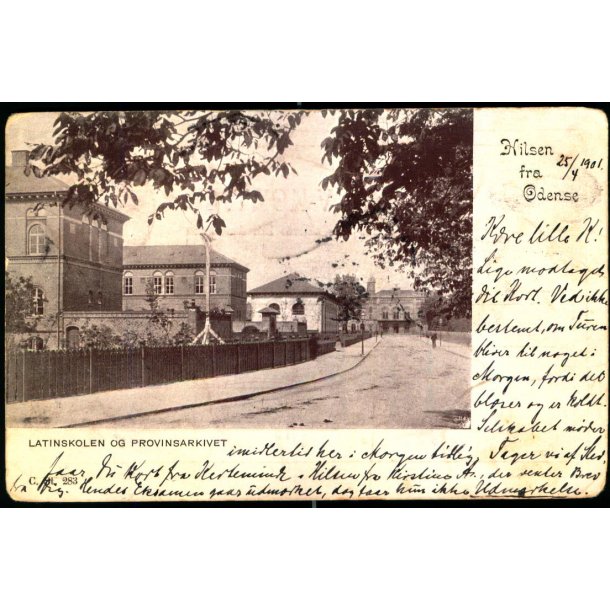 Hilsen
fra
Odense
25/4 1901.
Kære lille K!
Lige modtaget
dit Kort. Ved ikke
bestemt, om Turen
bliver til noget i
Morgen, fordi det
blæser og er koldt.
Selskabet møder
imidlertid her i Morgen tidlig. Tager vi af Sted,
faar du Kort fra Kerteminde. Hilsen fra Kirstine, der venter Brev
fra Dig. Hendes Eksamen gaar udmærket, dog faar hun ikke Udmærkelse.
LATINSKOLEN OG PROVINSARKIVET
283